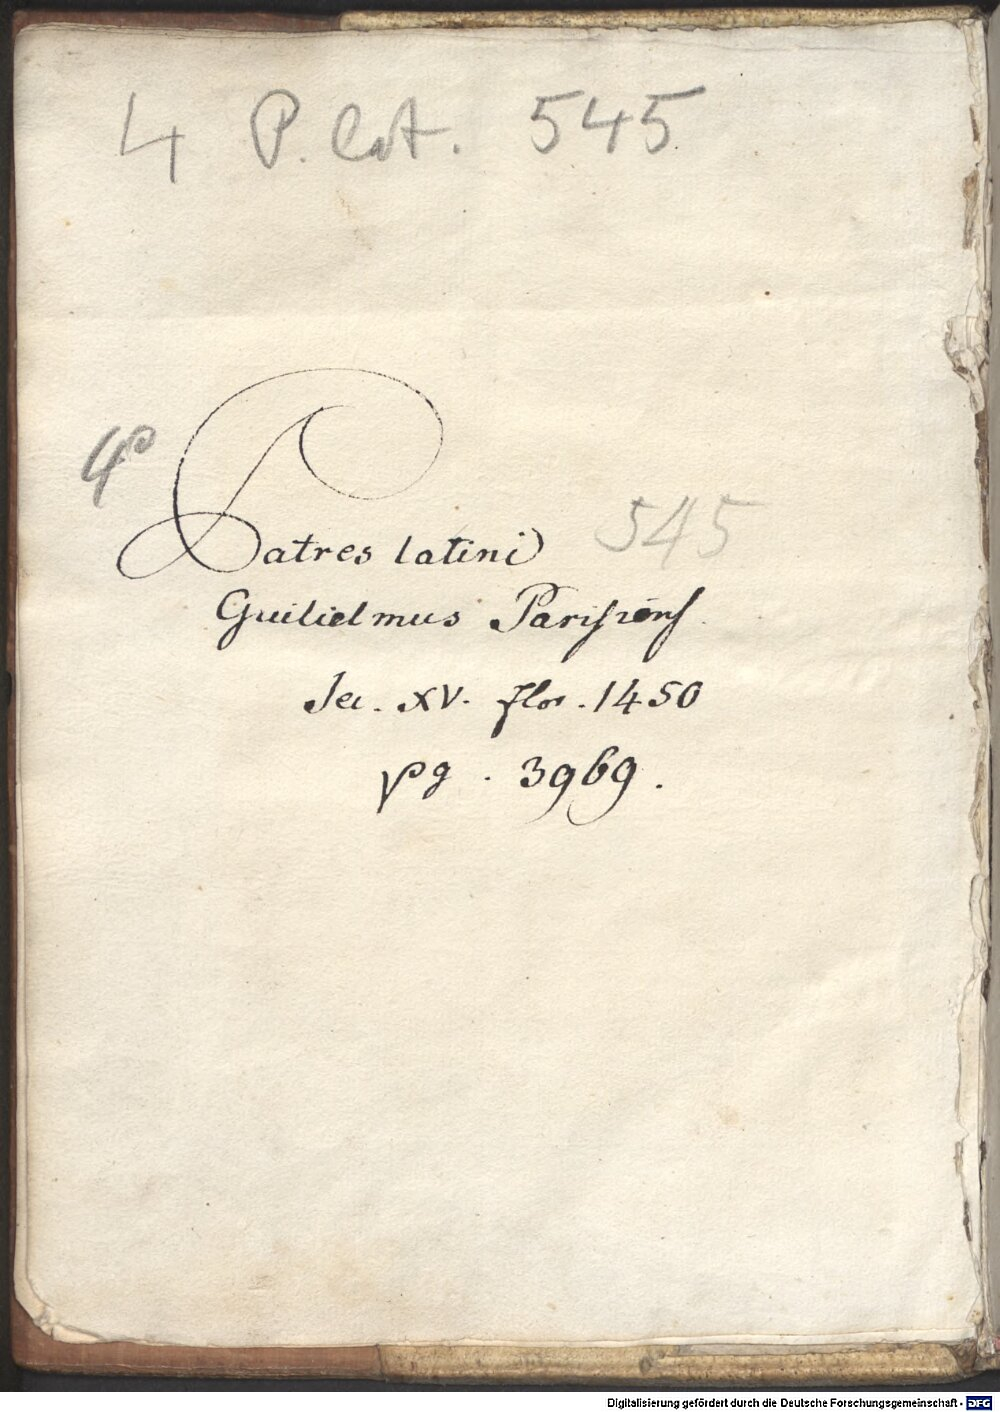 4 P. lat. 545
4º Patres latini 545
Guilielmus Parisiens.
Sec. XV. flor. 1450
pg. 3969.
Digitalisierung gefördert durch die Deutsche Forschungsgemeinschaft - DFG